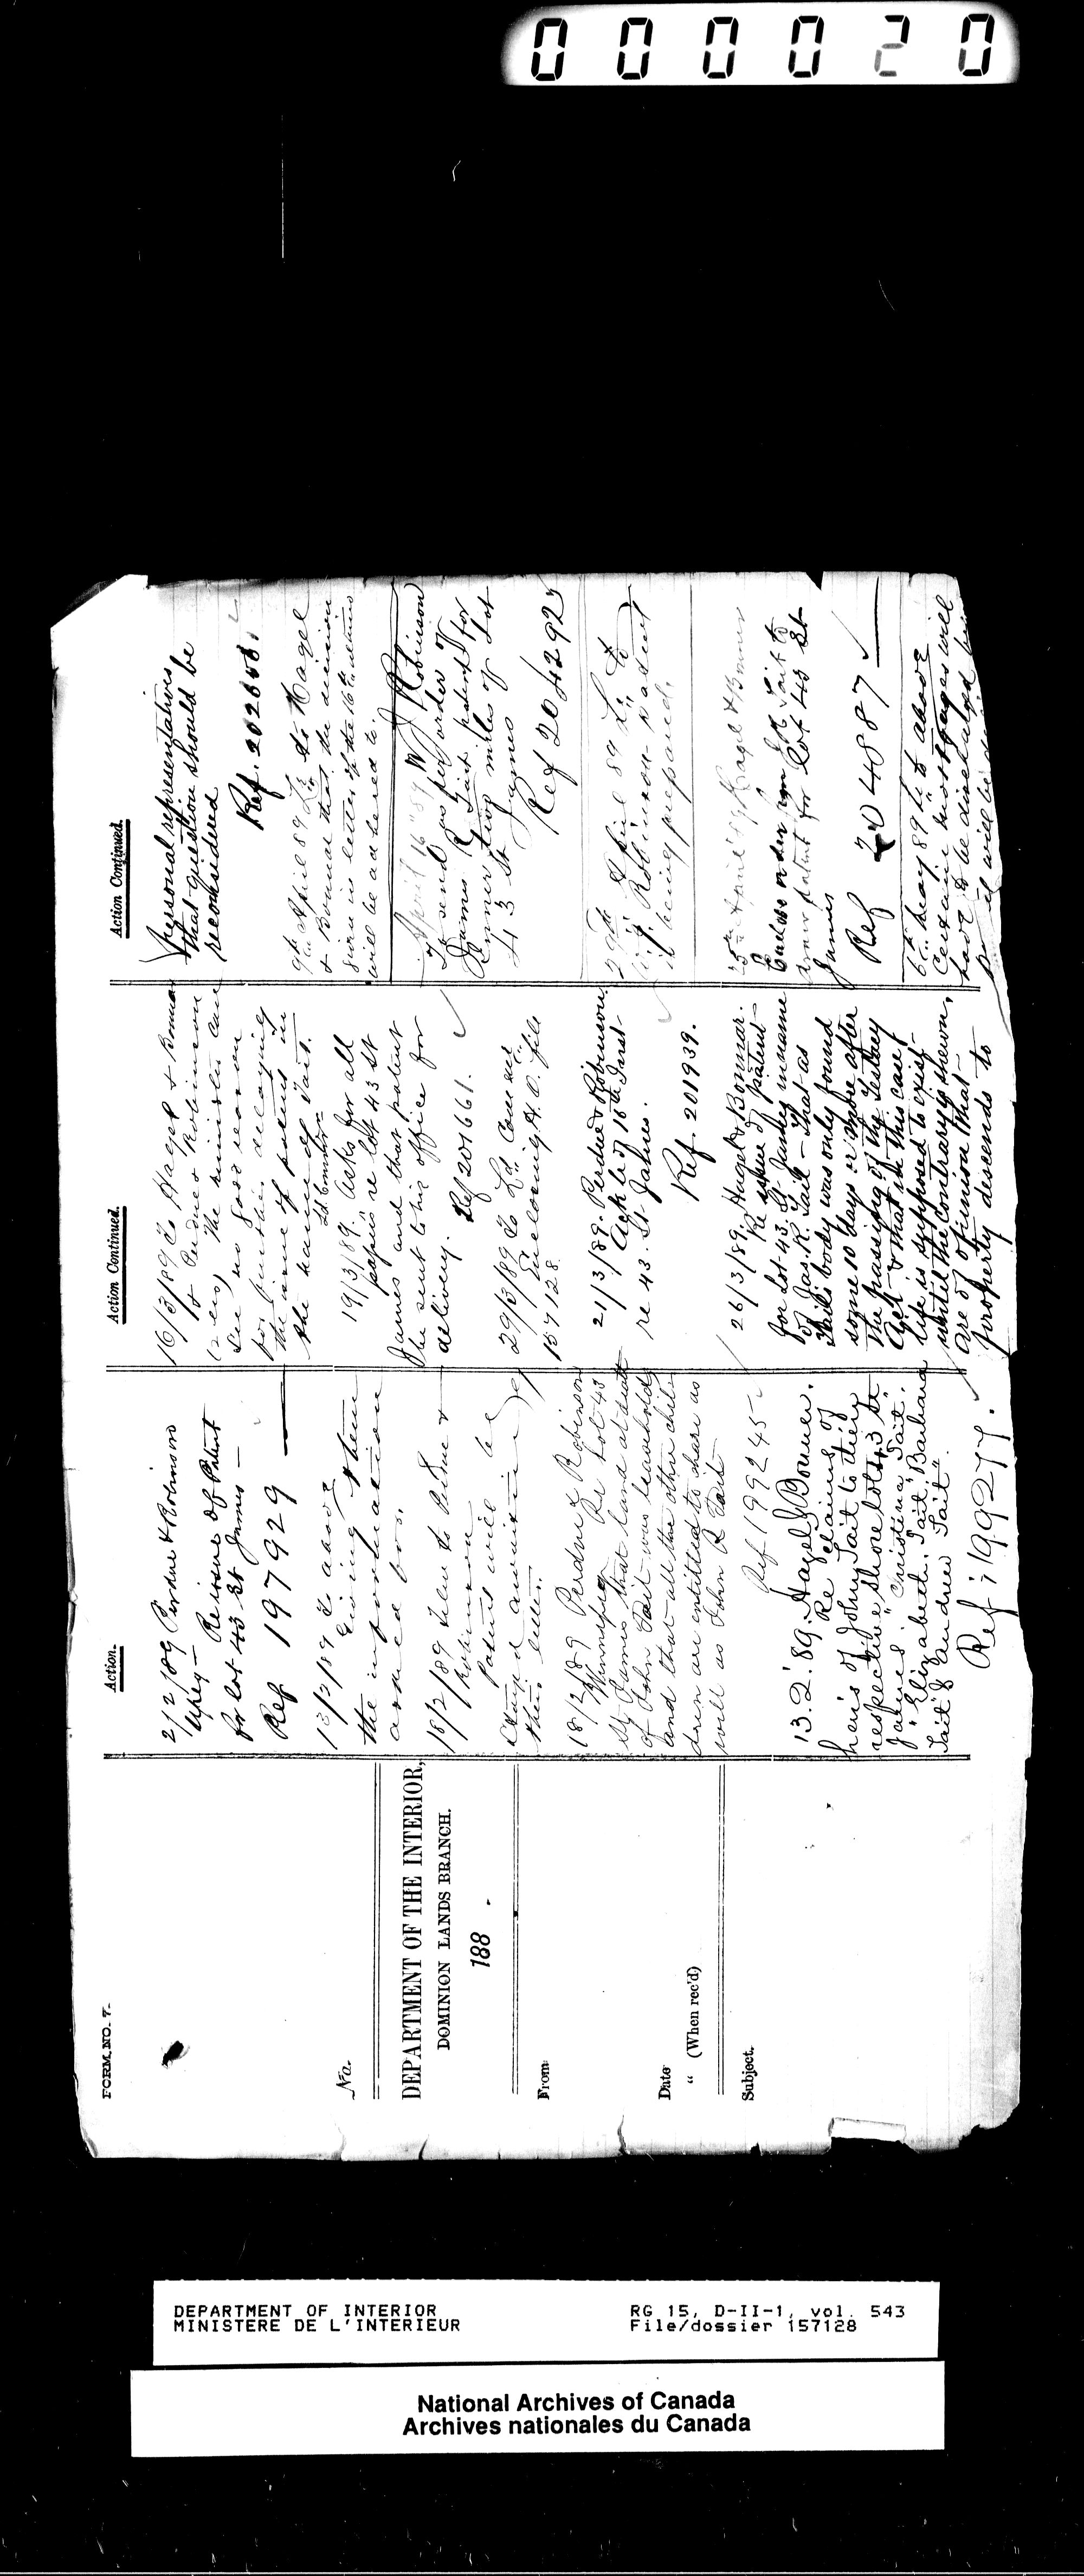 000020
FORM NO. 7.
No.
DEPARTMENT OF THE INTERIOR,
DOMINION LANDS BRANCH.
188 .
From
Date
" (When rec'd)
Subject.
Action.
2/2/89 Perdue & Robinson
Reissue of Patent
for lot 43 St James —
Ref 197929
13/2/89 To above
Giving them
the information
asked for.
18/2/89 to Perdue &
Robinson
Patent will be
their letter.
18/2/89 Perdue & Robinson
Winnipeg Re Lot 43
St James that land at death
of John Tait was leasehold
and that all the other chil-
dren are entitled to share as
well as John R Tait
Ref 199245
13.2.'89. Hagel & Bonner.
Re claims of
heirs of John Tait to their
respective share lots 43 St
James. "Christina Tait."
"Elizabeth Tait" Barbara
Tait" & Andrew Tait".
Ref: 199277.
Action Continued.
16/3/89 To Hagel & Bonnar
& Perdue & Robinson
(2 encs) The minister can
see no good reason
for further delaying
the issue of patent in
the name of Tait.
19/3/89. Asks for all
papers re lot 43 St
James and that patent
be sent to his office for
delivery. Ref 201661.
29/3/89 To Ld Com
Enclosing H.O. file
157128.
21/3/89. Perdue & Robinson.
Ack le of 16th Inst-
re 43. St. James.
Ref. 201939.
26/3/89. Hagel & Bonnar.
Re issue of patent-
for Lot 43. St. James in name
of Jas. R. Tait - That as
Tait's body was only found
some 10 days or more after
the passing of the Testacy
Act & that in this case,
life is supposed to exist
until the contrary is shewn,
are of opinion that-
property descends to
Action Continued.
personal representatives
that question should be
reconsidered
Ref. 202653
9th April 89 Lr to Hagel
& Bonnar that the decision
given in letter of the 16th ultimo
will be adhered to.
April 16 "89 W J Robinson
To send as per order of
James R Tait patent for
inner two miles of Lot
43 St James
Ref 204292
29th April 89 Lr to
W.J. Robinson Patent
is being prepared.
25th April 89 Hagel & Bonnar
Enclose order from J R Tait to
issue patent for Lot 43 St
James
Ref 204887
6th May 89 Lr to above
Certain mortgages will
have to be discharged